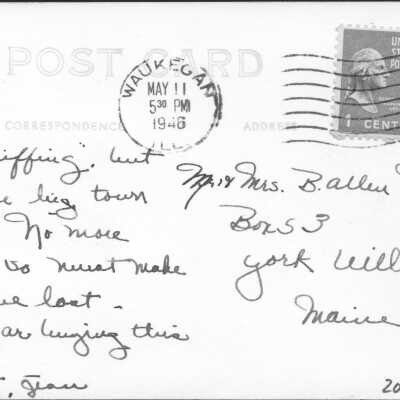 POST CARD
WAUKEGAN
MAY 11
5 30 PM
1946
ILL.
UN
STA
POS
1 CENT
CORRESPONDENCE
ADDRESS
iffing", but
e big town
No more
so must make
ve last -
ar buying this
Jean
Mr & Mrs. B. Allen
Box 53
York Vill
Maine
20